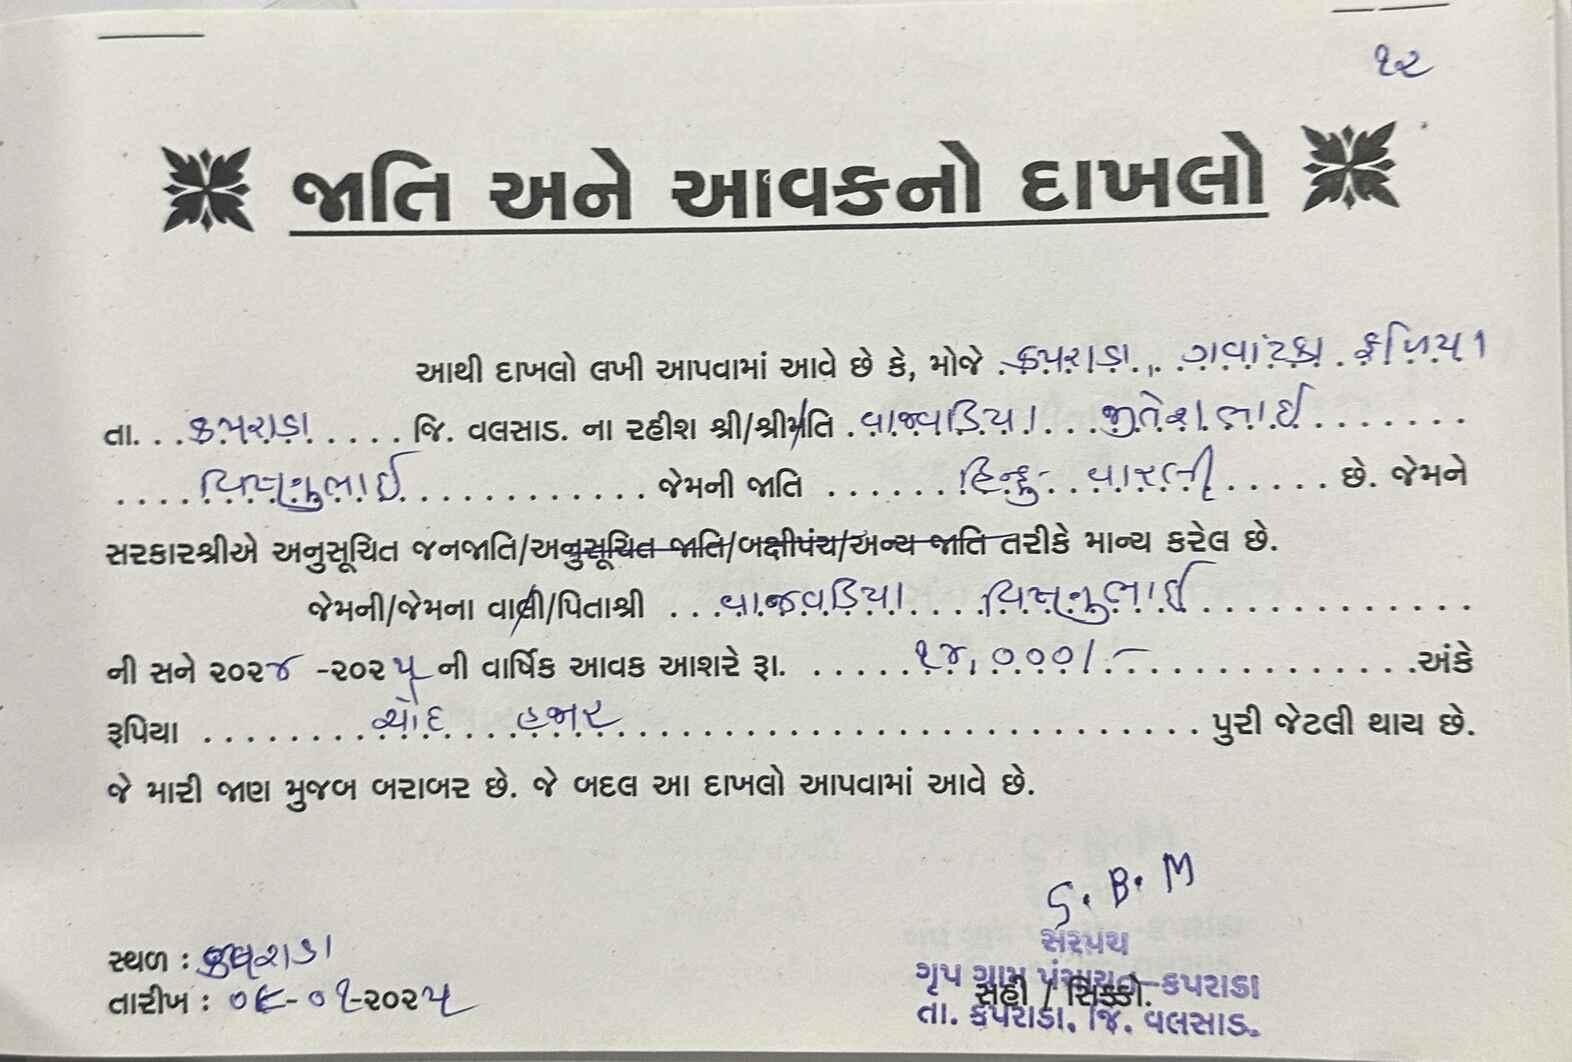 ૧૨
જાતિ અને આવકનો દાખલો
આથી દાખલો લખી આપવામાં આવે છે કે, મોજે કપરાડા, ગવાટકા ફળિયા
તા. કપરાડા જિ. વલસાડ. ના રહીશ શ્રી/શ્રીમતિ વાજવડિયા જીતેશભાઈ
વિષ્ણુભાઈ જેમની જાતિ હિન્દુ વારલી છે. જેમને
સરકારશ્રીએ અનુસૂચિત જનજાતિ/અનુસૂચિત જાતિ/બક્ષીપંચ/અન્ય જાતિ તરીકે માન્ય કરેલ છે.
જેમની/જેમના વાલી/પિતાશ્રી વાજવડિયા વિષ્ણુભાઈ
ની સને ૨૦૨૪ -૨૦૨૫ ની વાર્ષિક આવક આશરે રૂા. ૧૪,૦૦૦/- અંકે
રૂપિયા ચૌદ હજાર પુરી જેટલી થાય છે.
જે મારી જાણ મુજબ બરાબર છે. જે બદલ આ દાખલો આપવામાં આવે છે.
S. B. M
સ્થળ : કપરાડા
સરપંચ
ગૃપ ગ્રામ પંચાયત-કપરાડા
તારીખ : ૦૯-૦૧-૨૦૨૫
સહી / સિક્કો.
તા. કપરાડા. જિ. વલસાડ.